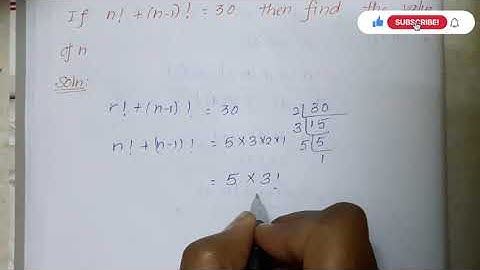 If n! + (n-1)! = 30 then find the value
of n
Soln:
n! + (n-1)! = 30
n! + (n-1)! = 5 × 3 × 2 × 1
= 5 × 3!
2 | 30
3 | 15
5 | 5
1
SUBSCRIBE!